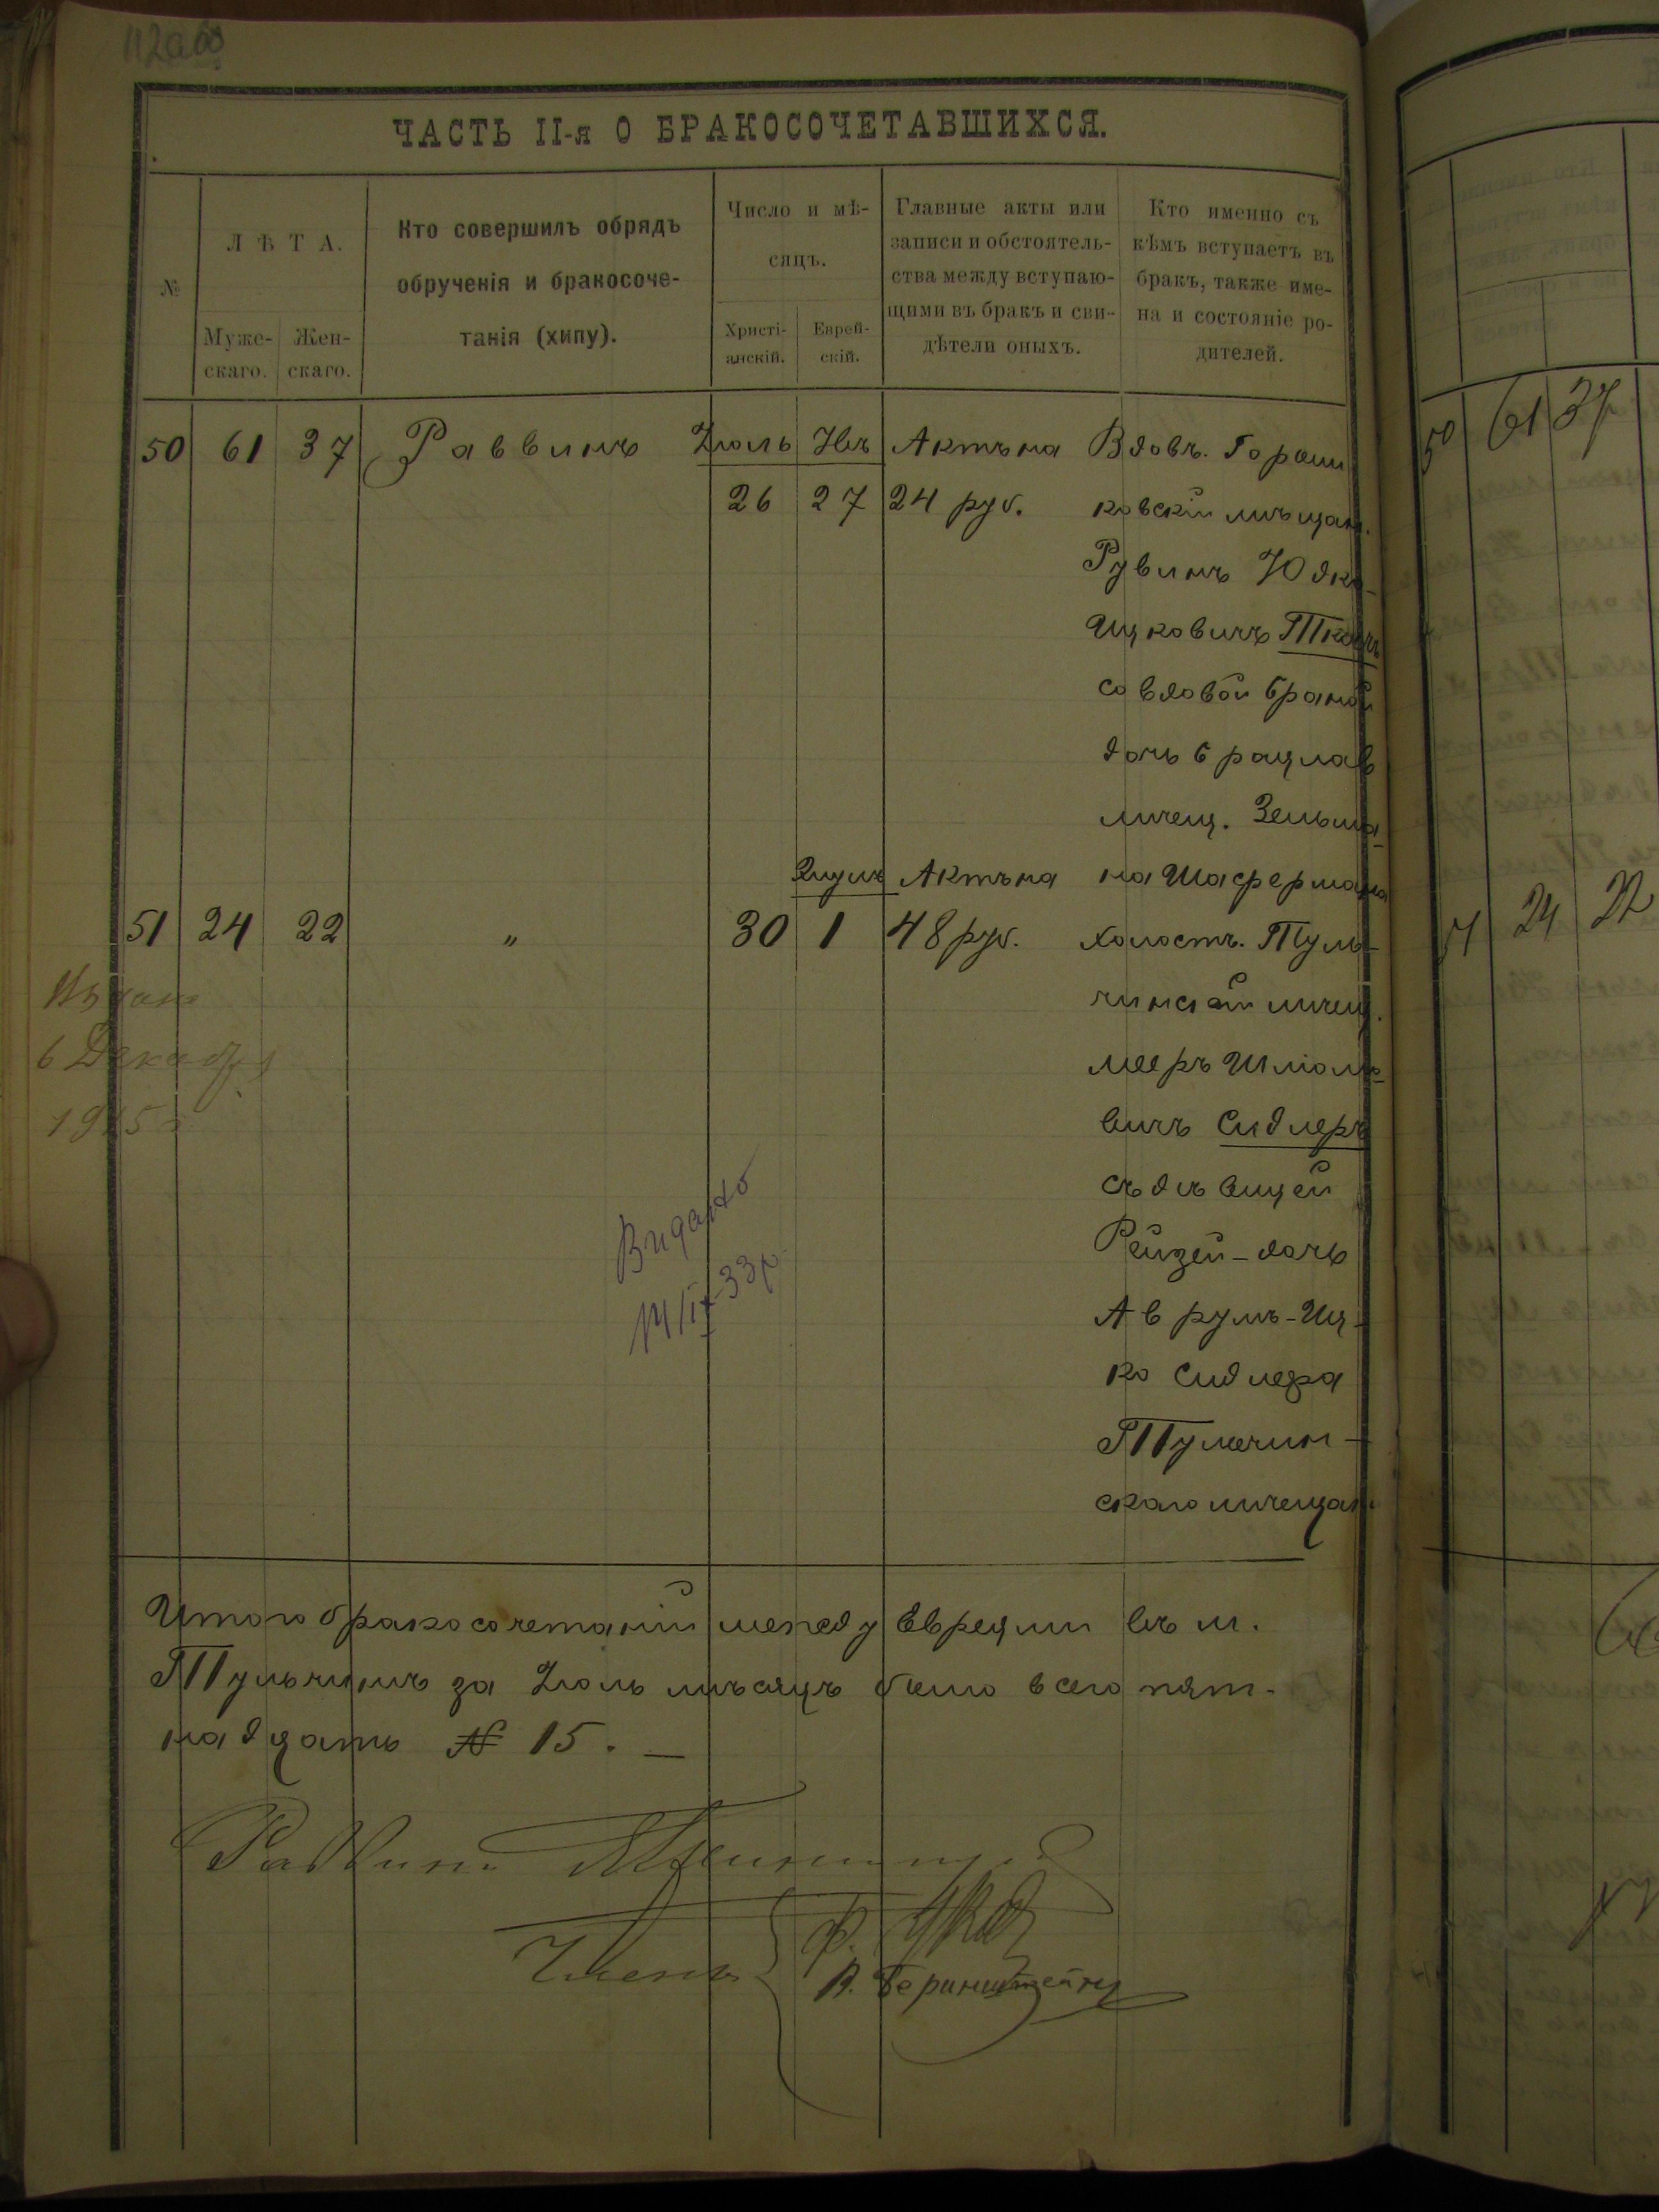 ЧАСТЬ II-я О БРАКОСОЧЕТАВШИХСЯ.
№
ЛѢТА.
Муже-
скаго.
Жен-
скаго.
Кто совершилъ обрядъ
обрученія и бракосоче-
танія (хипу).
Число и мѣ-
сяцъ.
Христі-
анскій.
Еврей-
скій.
Главные акты или
записи и обстоятель-
ства между вступаю-
щими въ бракъ и сви-
дѣтели оныхъ.
Кто именно съ
кѣмъ вступаетъ въ
бракъ, также име-
на и состояніе ро-
дителей.
50 61 37 Раввинъ Іюль Актъ на Вдовъ. Гораш
26 27 24 руб. ковскій мѣщан.
Рувинъ Юдко-
Ицковичъ Ткачъ
со вдовой Браной
дочь Брацлав
мѣщ. Зельма-
на Шафермана
Актъ на
51 24 22 " 30 1 48 руб. холостъ. Туль-
чинскій мѣщ.
Мееръ Шміоло-
вичъ Сидлеръ
съ дѣвицей
Рейзей-дочь
Аврумъ-Иц-
ко Сидлера
Тульчин-
скаго мѣщан.
6 Декабря
Видано
14/IX-33р
Итого бракосочетаній между Евреями въ м.
Тульчинѣ за Іюль мѣсяцъ было всего пят-
надцать № 15. —
Раввинъ
Члены
В. Беринштейнъ
50 61 37
51 24 22